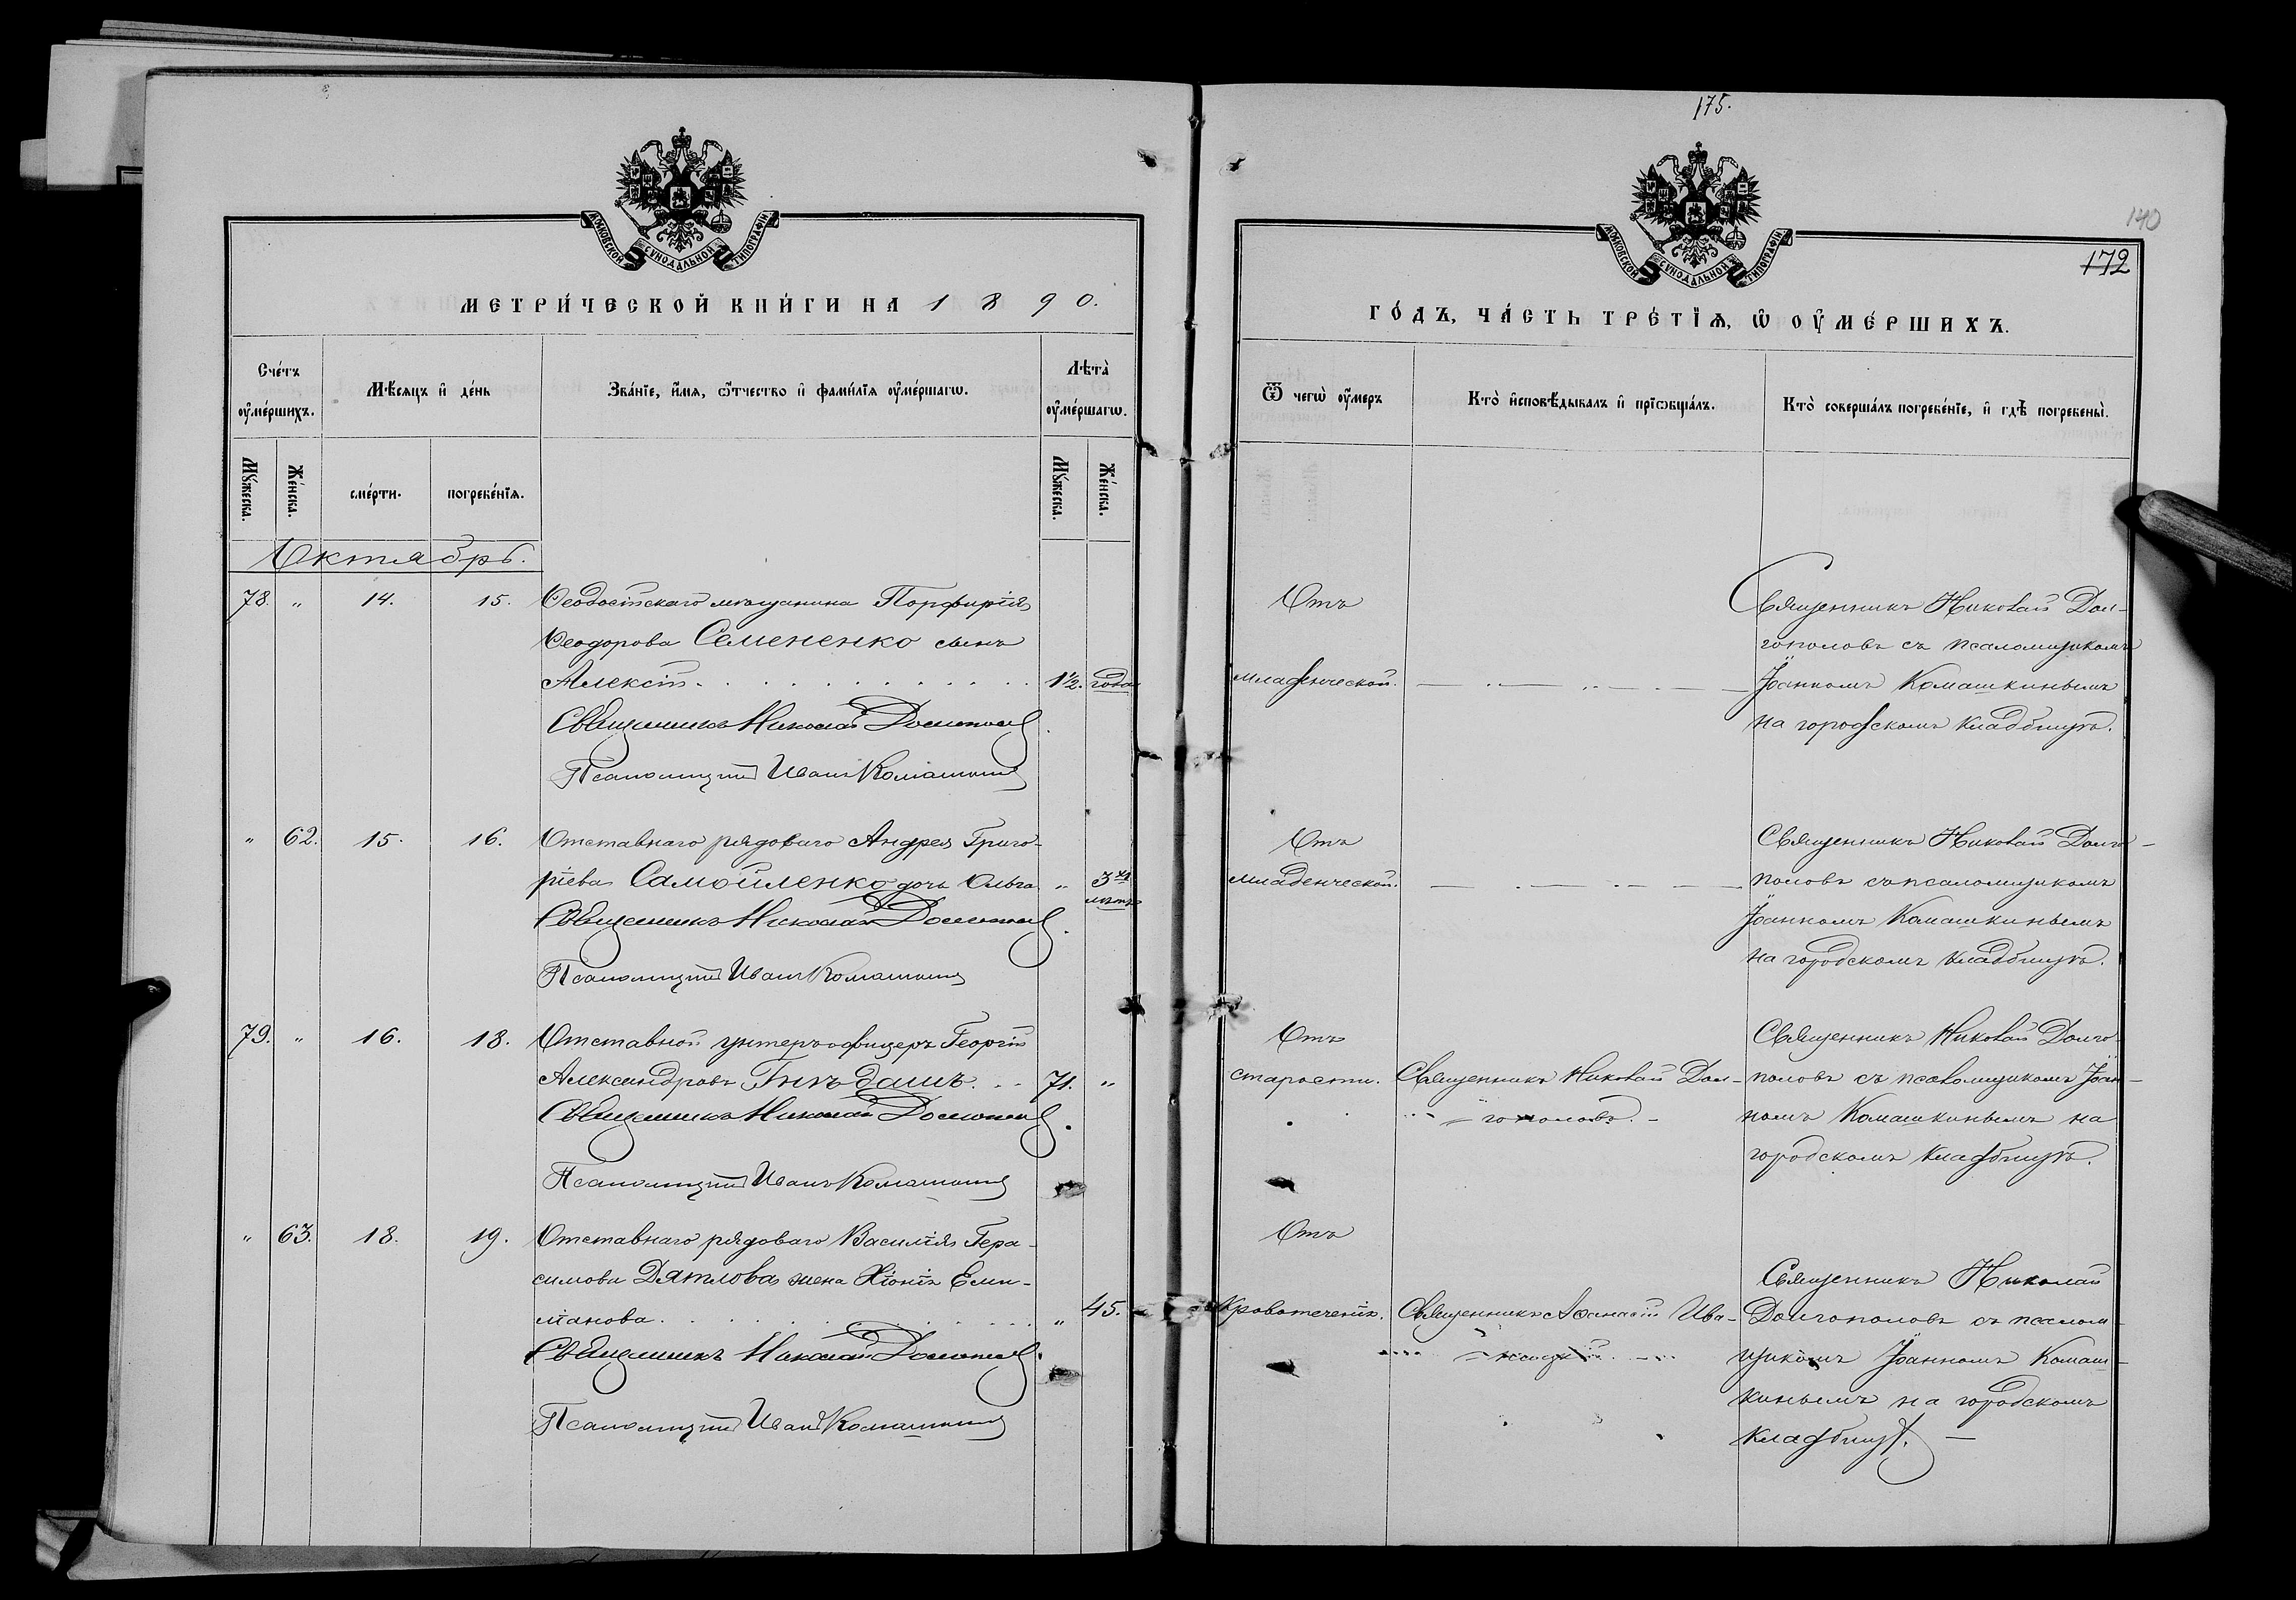 175.
140
172
МОСКОВСКОЙ СѴНОДАЛЬНОЙ ТИПОГРАФІИ
МОСКОВСКОЙ СѴНОДАЛЬНОЙ ТИПОГРАФІИ
МЕТРИ́ЧЕСКОЙ КНИ́ГИ НА 1890.
ГО́ДЪ, ЧА́СТЬ ТРЕ́ТІѦ, Ѡ҆ ОУ҆МЕ́РШИХЪ.
Сче́тъ оу҆ме́ршихъ.
Мѣ́сяцъ и҆ де́нь
Зва́ніе, и҆́мя, ѻ҆́тчество и҆ фами́лія оу҆ме́ршагѡ.
Лѣта̀ оу҆ме́ршагѡ.
Ѿ чегѡ̀ оу҆́меръ
Кто̀ и҆сповѣ́дывалъ и҆ прїѡбща́лъ.
Кто̀ соверша́лъ погребе́ніе, и҆ гдѣ̀ погребены̀.
Мꙋ́жеска.
Же́нска.
сме́рти.
погребе́нїя.
Мꙋ́жеска.
Же́нска.
Октябрь.
78. " 14. 15. Ѳеодосійскаго мѣщанина Порфирія
Ѳеодорова Семененко сынъ
Алексій. 1½. года
Священникъ Николай Долгополовъ.
Псаломщикъ Иванъ Комашкинъ
Отъ
младенческой.
Священникъ Николай Дол-
гополовъ съ псаломщикомъ
Іоанномъ Комашкинымъ
на городскомъ кладбищѣ.
" 62. 15. 16. Отставнаго рядоваго Андрея Григо-
ріева Самойленко дочь Ольга " 3хъ
лѣтъ
Священникъ Николай Долгополовъ.
Псаломщикъ Иванъ Комашкинъ
Отъ
младенческой.
Священникъ Николай Долго-
половъ съ псаломщикомъ
Іоанномъ Комашкинымъ
на городскомъ кладбищѣ.
79. " 16. 18. Отставной унтеръ-офицеръ Георгій
Александровъ 71. "
Священникъ Николай Долгополовъ.
Псаломщикъ Иванъ Комашкинъ
Отъ
старости.
Священникъ Николай Дол-
гополовъ.
Священникъ Николай Долго-
половъ съ псаломщикомъ Іоан-
номъ Комашкинымъ на
городскомъ кладбищѣ.
" 63. 18. 19. Отставнаго рядоваго Василія Гера-
симова Дятлова жена Хіонія Еми-
ліанова. " 45.
Священникъ Николай Долгополовъ.
Псаломщикъ Иванъ Комашкинъ
Отъ
Кровотеченія.
Священникъ Аѳанасій Ива-
Священникъ Николай
Долгополовъ съ псалом-
щикомъ Іоанномъ Комаш-
кинымъ на городскомъ
кладбищѣ.